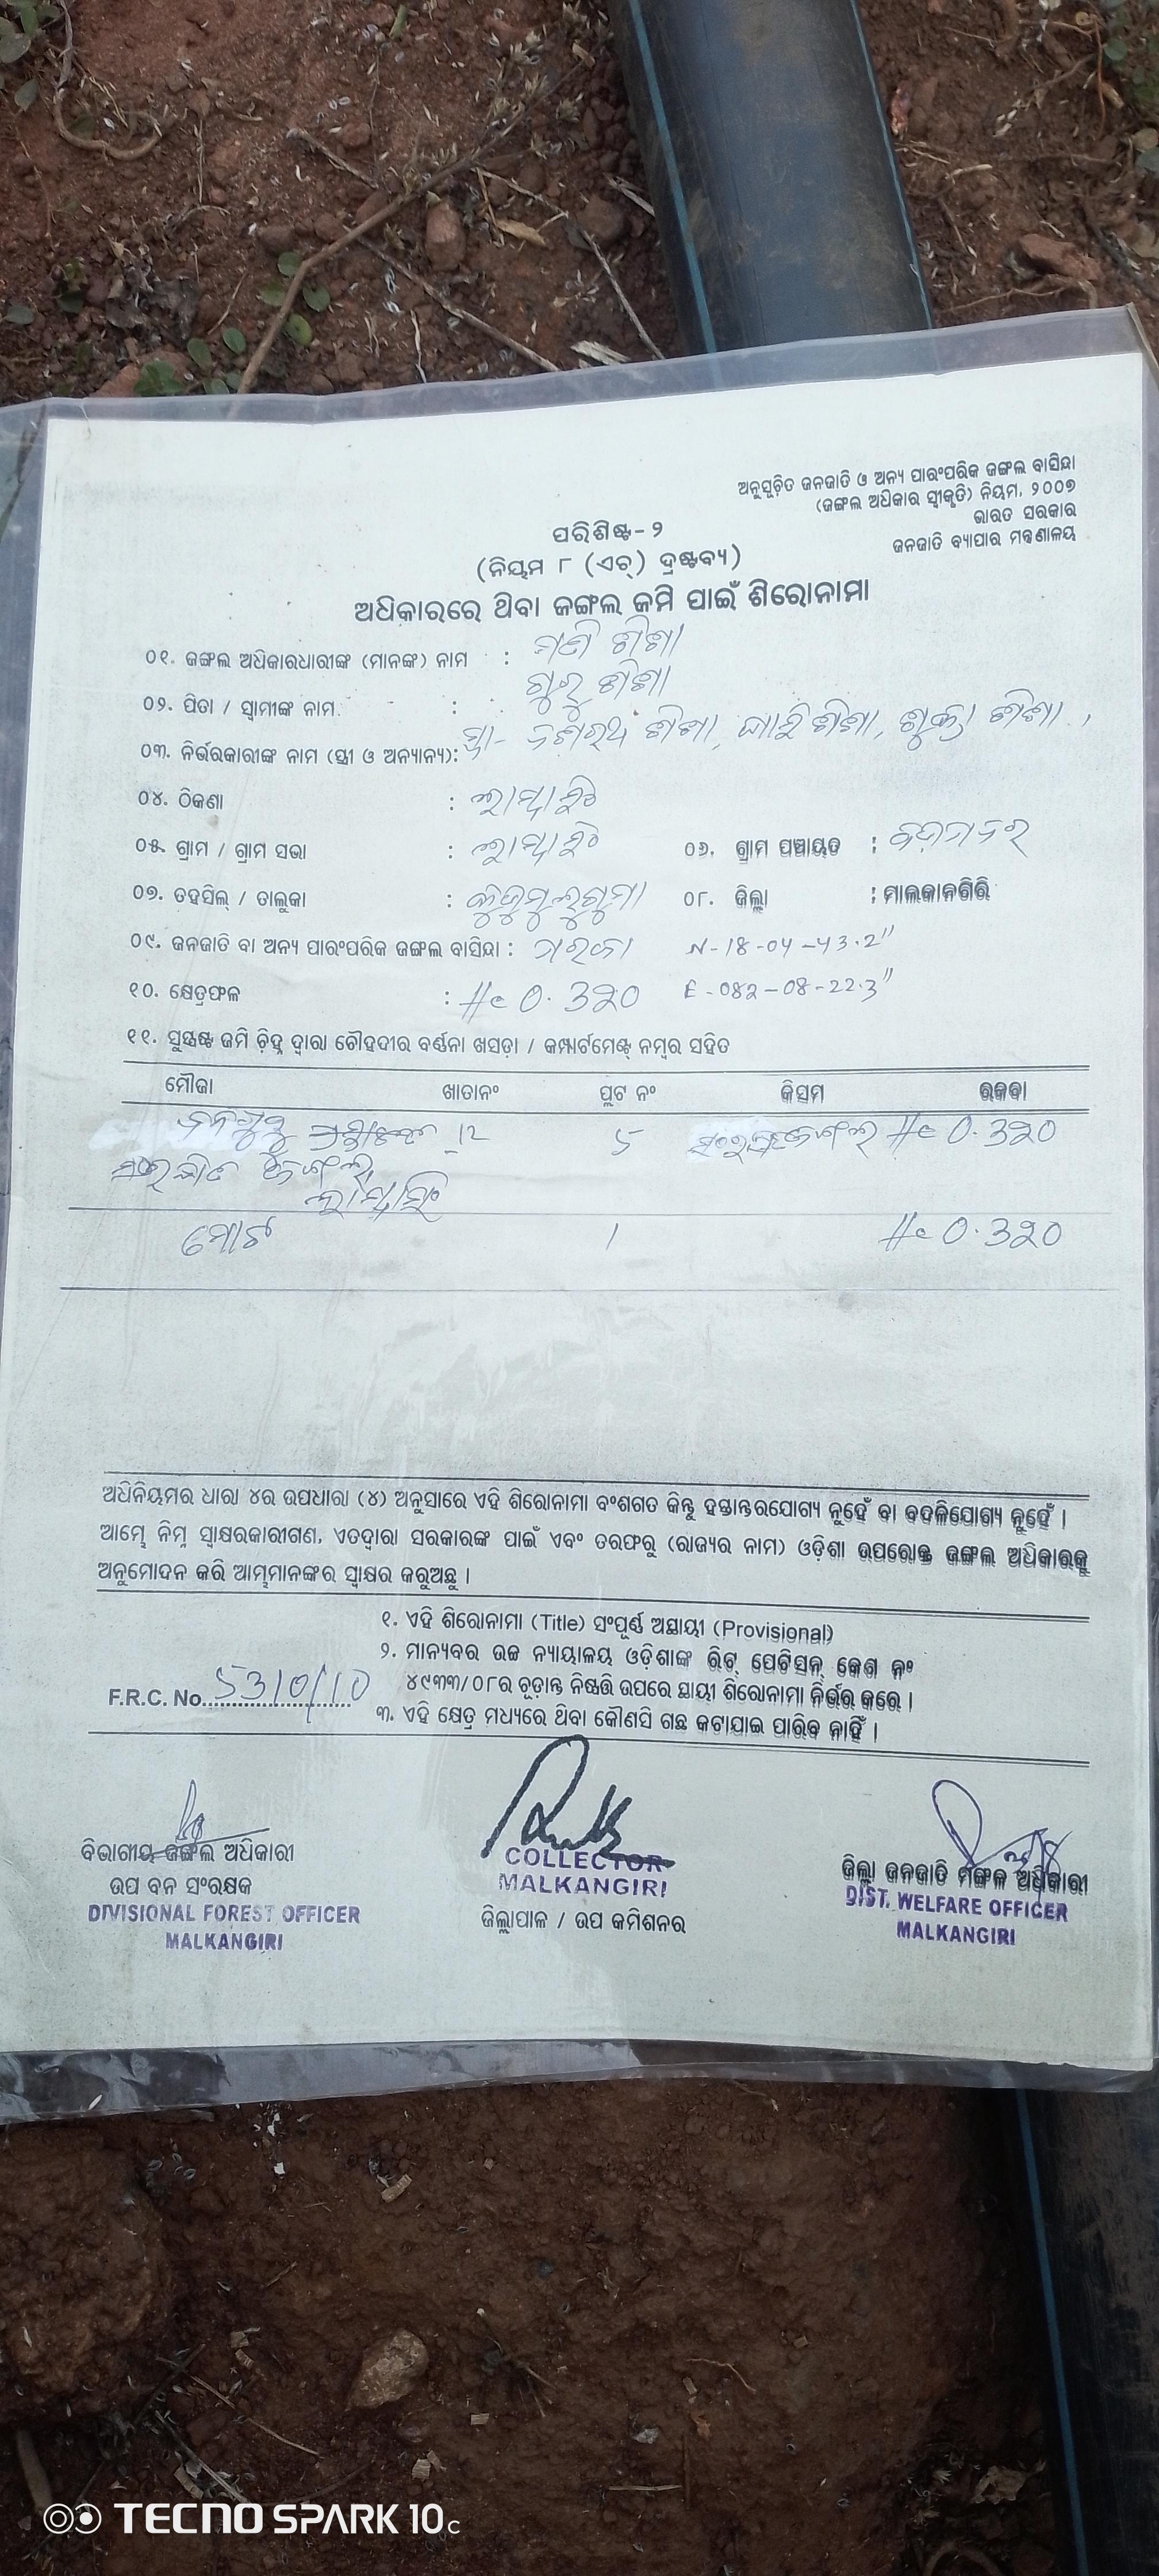 ଅନୁସୂଚିତ ଜନଜାତି ଓ ଅନ୍ୟ ପାରଂପରିକ ଜଙ୍ଗଲ ବାସିନ୍ଦା
(ଜଙ୍ଗଲ ଅଧିକାର ସ୍ୱୀକୃତି) ନିୟମ, ୨୦୦୭
ଭାରତ ସରକାର
ଜନଜାତି ବ୍ୟାପାର ମନ୍ତ୍ରଣାଳୟ
ପରିଶିଷ୍ଟ-୨
(ନିୟମ ୮ (ଏଚ୍) ଦ୍ରଷ୍ଟବ୍ୟ)
ଅଧିକାରରେ ଥିବା ଜଙ୍ଗଲ ଜମି ପାଇଁ ଶିରୋନାମା
୦୧. ଜଙ୍ଗଲ ଅଧିକାରଧାରୀଙ୍କ (ମାନଙ୍କ) ନାମ :
୦୨. ପିତା / ସ୍ୱାମୀଙ୍କ ନାମ :
୦୩. ନିର୍ଭରକାରୀଙ୍କ ନାମ (ସ୍ତ୍ରୀ ଓ ଅନ୍ୟାନ୍ୟ):
୦୪. ଠିକଣା :
୦୫. ଗ୍ରାମ / ଗ୍ରାମ ସଭା : ୦୬. ଗ୍ରାମ ପଞ୍ଚାୟତ :
୦୭. ତହସିଲ୍ / ତାଲୁକା : ୦୮. ଜିଲ୍ଲା : ମାଲକାନଗିରି
୦୯. ଜନଜାତି ବା ଅନ୍ୟ ପାରଂପରିକ ଜଙ୍ଗଲ ବାସିନ୍ଦା : N-18-04-43.2"
୧୦. କ୍ଷେତ୍ରଫଳ : Hc 0.320 E-082-08-22.3"
୧୧. ସୁସ୍ପଷ୍ଟ ଜମି ଚିହ୍ନ ଦ୍ୱାରା ଚୌହଦୀର ବର୍ଣ୍ଣନା ଖସଡ଼ା / କମ୍ପାର୍ଟମେଣ୍ଟ୍ ନମ୍ବର ସହିତ
ମୌଜା ଖାତାନଂ ପ୍ଲଟ ନଂ କିସମ ରକବା
12 5 Hc 0.320
ଜଙ୍ଗଲ
ମୋଟ 1 Hc 0.320
ଅଧିନିୟମର ଧାରା ୪ର ଉପଧାରା (୪) ଅନୁସାରେ ଏହି ଶିରୋନାମା ବଂଶଗତ କିନ୍ତୁ ହସ୍ତାନ୍ତରଯୋଗ୍ୟ ନୁହେଁ ବା ବଦଳିଯୋଗ୍ୟ ନୁହେଁ ।
ଆମ୍ଭେ ନିମ୍ନ ସ୍ୱାକ୍ଷରକାରୀଗଣ, ଏତଦ୍ୱାରା ସରକାରଙ୍କ ପାଇଁ ଏବଂ ତରଫରୁ (ରାଜ୍ୟର ନାମ) ଓଡ଼ିଶା ଉପରୋକ୍ତ ଜଙ୍ଗଲ ଅଧିକାରକୁ
ଅନୁମୋଦନ କରି ଆମ୍ଭମାନଙ୍କର ସ୍ୱାକ୍ଷର କରୁଅଛୁ ।
୧. ଏହି ଶିରୋନାମା (Title) ସଂପୂର୍ଣ୍ଣ ଅସ୍ଥାୟୀ (Provisional)
୨. ମାନ୍ୟବର ଉଚ୍ଚ ନ୍ୟାୟାଳୟ ଓଡ଼ିଶାଙ୍କ ରିଟ୍ ପେଟିସନ୍ କେଶ ନଂ
୪୯୩୩/୦୮ର ଚୂଡ଼ାନ୍ତ ନିଷ୍ପତ୍ତି ଉପରେ ସ୍ଥାୟୀ ଶିରୋନାମା ନିର୍ଭର କରେ ।
F.R.C. No. 5310/10
୩. ଏହି କ୍ଷେତ୍ର ମଧ୍ୟରେ ଥିବା କୌଣସି ଗଛ କଟାଯାଇ ପାରିବ ନାହିଁ ।
ବିଭାଗୀୟ ଜଙ୍ଗଲ ଅଧିକାରୀ
ଉପ ବନ ସଂରକ୍ଷକ
DIVISIONAL FOREST OFFICER
MALKANGIRI
COLLECTOR
MALKANGIRI
ଜିଲ୍ଲାପାଳ / ଉପ କମିଶନର
ଜିଲ୍ଲା ଜନଜାତି ମଙ୍ଗଳ ଅଧିକାରୀ
DIST. WELFARE OFFICER
MALKANGIRI
TECNO SPARK 10c